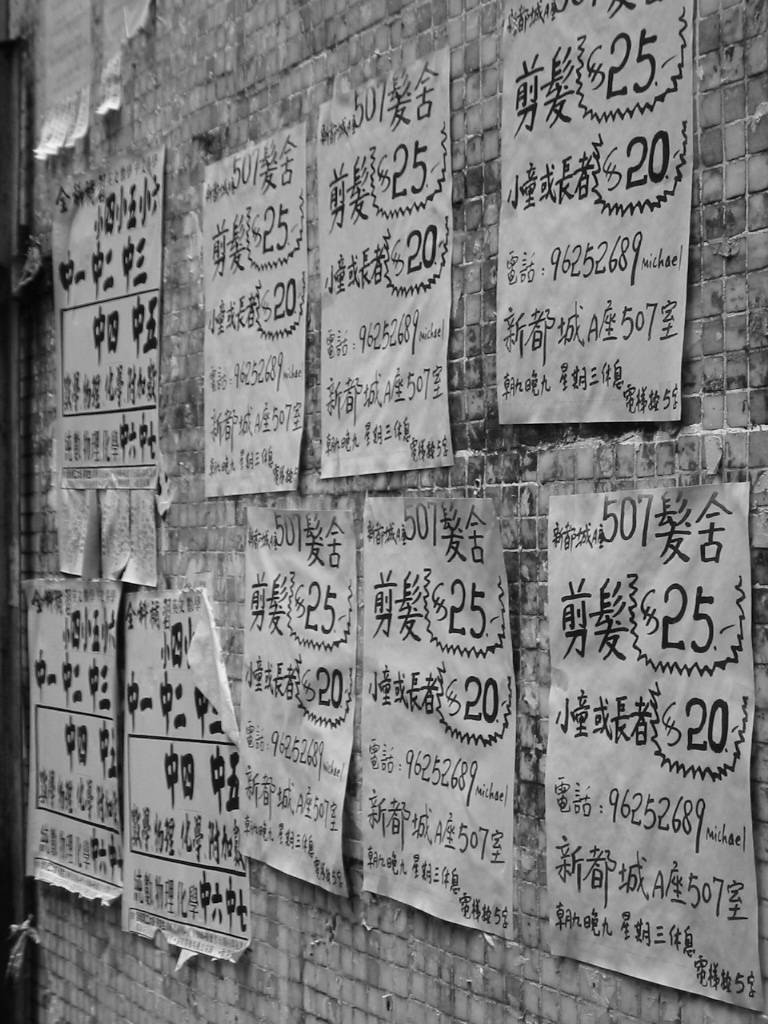 全科補習
小四小五小六
中一 中二 中三
中四 中五
數學 物理 化學 附加數
純數 物理 化學 中六 中七
新都城A座507髮舍
剪髮$25.-
小童或長者$20
電話:96252689 Michael
新都城A座507室
朝九晚九 星期三休息
電梯按5字
新都城A座507髮舍
剪髮$25.-
小童或長者$20.-
電話:96252689 Michael
新都城A座507室
朝九晚九 星期三休息
電梯按5字
新都城A座507髮舍
剪髮$25.-
小童或長者$20.-
電話:96252689 Michael
新都城A座507室
朝九晚九 星期三休息
電梯按5字
全科補習
小四小五小六
中一 中二 中三
中四 中五
數學 物理 化學 附加數
純數 物理 化學 中六 中七
全科補習
小四小
中一 中二 中三
中四 中五
數學 物理 化學 附加數
純數 物理 化學 中六 中七
新都城A座507髮舍
剪髮$25.-
小童或長者$20.-
電話:96252689
新都城A座507室
朝九晚九 星期三休息
電梯按5字
新都城A座507髮舍
剪髮$25.-
小童或長者$20.-
電話:96252689 Michael
新都城A座507室
朝九晚九 星期三休息
電梯按5字
新都城A座507髮舍
剪髮$25.-
小童或長者$20.-
電話:96252689 Michael
新都城A座507室
朝九晚九 星期三休息
電梯按5字